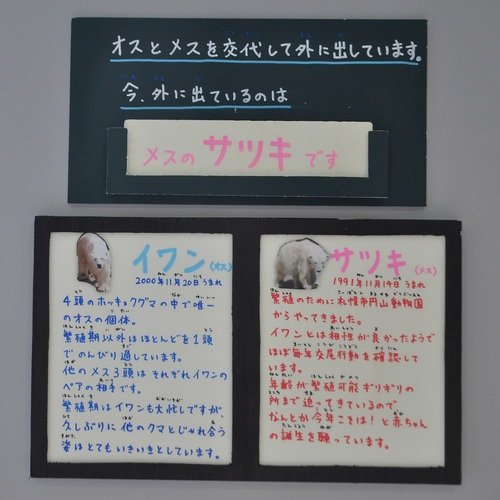 オスとメスを交代して外に出しています。
今、外に出ているのは
メスのサツキです
イワン(オス)
2000年11月20日うまれ
4頭のホッキョクグマの中で唯一
のオスの個体。
繁殖期以外はほとんどを1頭
でのんびり過しています。
他のメス3頭はそれぞれイワンの
ペアの相手です。
繁殖期はイワンも大忙しですが、
久しぶりに他のクマとじゃれ合う
姿はとてもいきいきとしています。
サツキ(メス)
1991年11月14日うまれ
繁殖のために札幌市円山動物園
からやってきました。
イワンとは相性が良かったようで
ほぼ毎年交尾行動を確認して
います。
年齢が繁殖可能ギリギリの
所まで迫ってきているので
なんとか今年こそは!と赤ちゃん
の誕生を願っています。